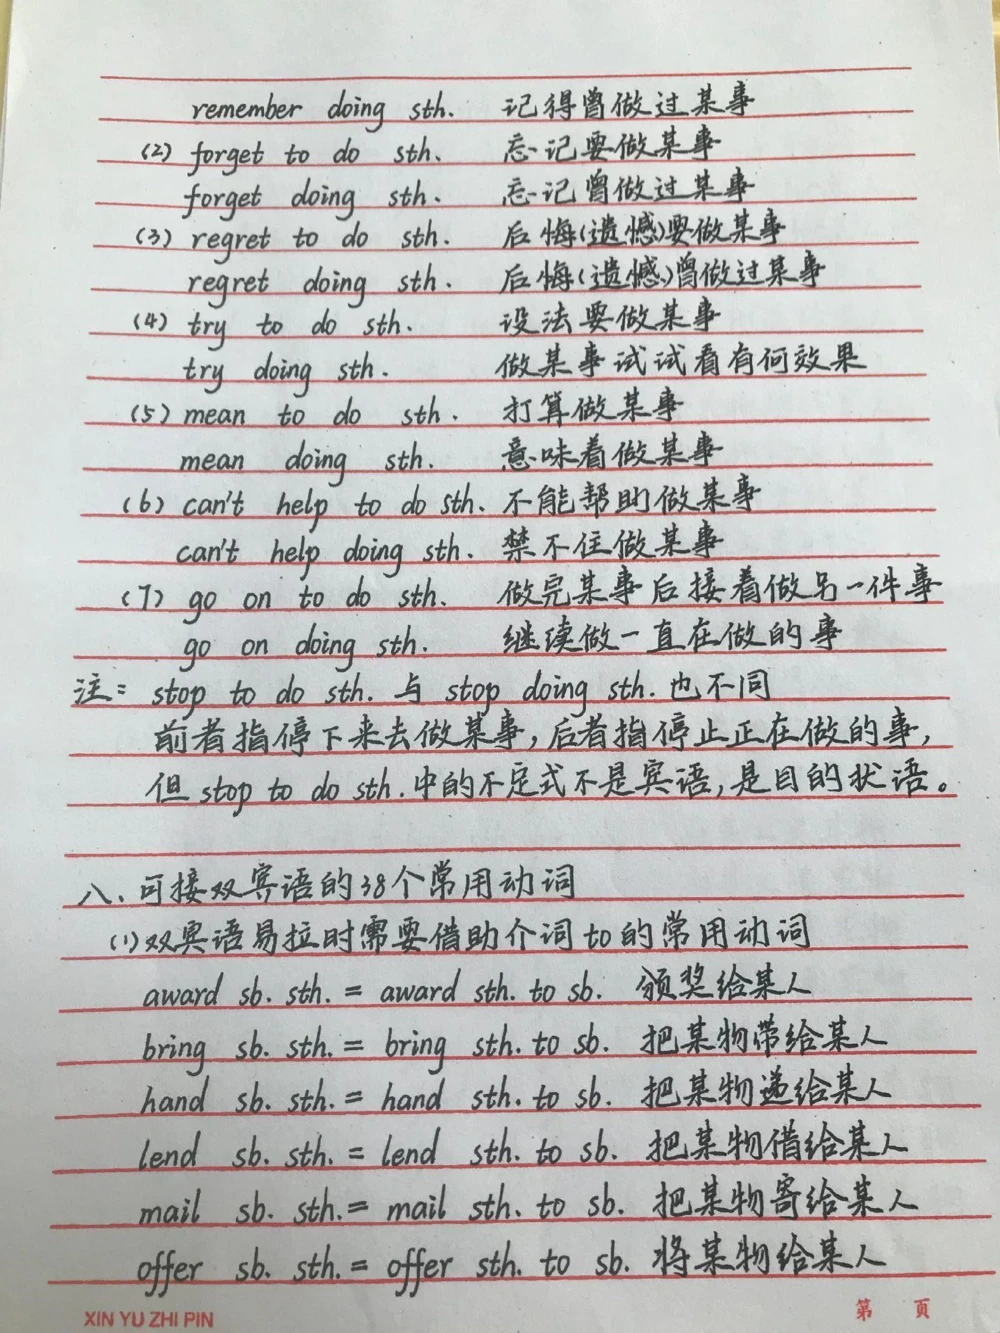 remember doing sth. 记得曾做过某事
(2) forget to do sth. 忘记要做某事
forget doing sth. 忘记曾做过某事
(3) regret to do sth. 后悔(遗憾)要做某事
regret doing sth. 后悔(遗憾)曾做过某事
(4) try to do sth. 设法要做某事
try doing sth. 做某事试试看有何效果
(5) mean to do sth. 打算做某事
mean doing sth. 意味着做某事
(6) can't help to do sth. 不能帮助做某事
can't help doing sth. 禁不住做某事
(7) go on to do sth. 做完某事后接着做另一件事
go on doing sth. 继续做一直在做的事
注: stop to do sth. 与 stop doing sth. 也不同
前者指停下来去做某事,后者指停止正在做的事,
但 stop to do sth. 中的不定式不是宾语,是目的状语。
八、可接双宾语的38个常用动词
(1) 双宾语易拉时需要借助介词to的常用动词
award sb. sth. = award sth. to sb. 颁奖给某人
bring sb. sth. = bring sth. to sb. 把某物带给某人
hand sb. sth. = hand sth. to sb. 把某物递给某人
lend sb. sth. = lend sth. to sb. 把某物借给某人
mail sb. sth. = mail sth. to sb. 把某物寄给某人
offer sb. sth. = offer sth. to sb. 将某物给某人
XIN YU ZHI PIN 第 页